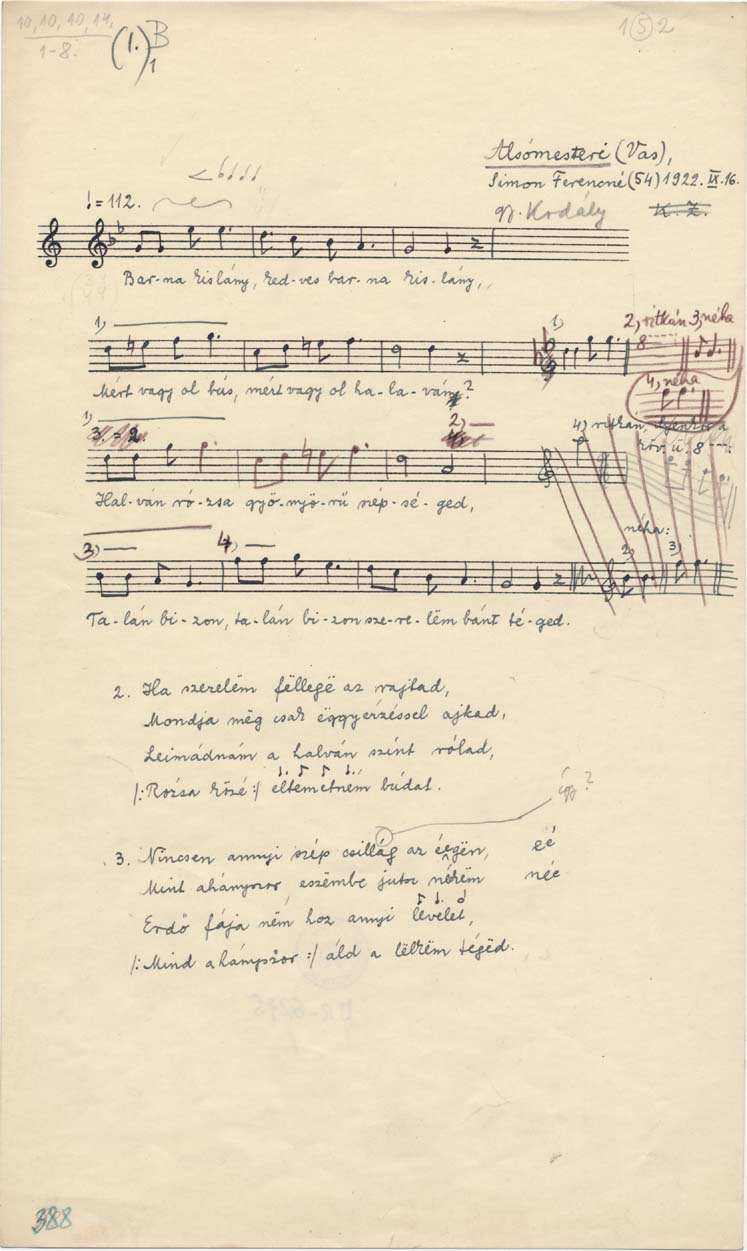 10, 10, 10, 14.
1-8.
(1.) B
1
1 (5) 2
Alsómesteri (Vas),
Simon Ferencné (54) 1922. IX. 16.
gy. Kodály
K. Z.
♩= 112.
Bar-na kislány, ked-ves bar-na kis-lány,
1)
1)
2, ritkán 3, néha
8
4, néha
Mért vagy ol bús, mért vagy ol ha-la-vány?
1)
3. = 2.
2)
4, ritkán,
röv. ü. 8
Hal-ván ró-zsa gyö-nyö-rű nép-sé-ged,
néha:
3)
4)
2)
3)
Ta-lán bi-zon, ta-lán bi-zon sze-re-lëm bánt té-ged.
2. Ha szerelëm fëllegë az rajtad,
Mondja mëg csak ëggyérzéssel ajkad,
Leimádnám a halván színt rólad,
/: Rózsa közé :/ eltemetném búdat.
így?
3. Nincsen annyi szép csillág az éegën, eé
Mint ahányszor eszëmbe jutsz nékëm née
Erdő fája nëm hoz annyi levelet,
/: Mind ahányszor :/ áld a lëlkëm tégëd.
388